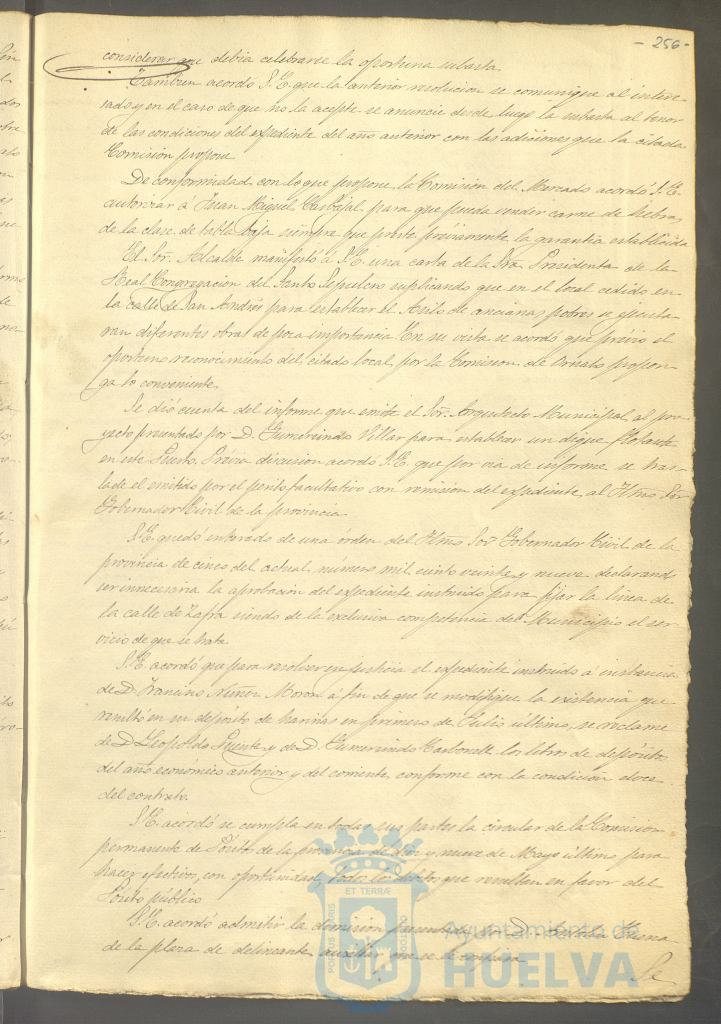 - 256 -
considerar que debia celebrarse la oportuna subasta.
Tambien acordó S.E. que la anterior resolucion se comunique al intere-
sado y en el caso de que no la acepte se anuncie desde luego la subasta al tenor
de las condiciones del expediente del año anterior con las adiciones que la citada
Comision propone.
De conformidad con lo que propone la Comision del Mercado acordó S.E.
autorizar á Juan Miguel Carbajal para que pueda vender carne de hebra
de la clase de tabla baja siempre que preste préviamente la garantia establecida
El Sor. Alcalde manifestó á S.E. una carta de la Sra. Presidenta de la
Real Congregacion del Santo Sepulcro suplicando que en el local cedido en
la calle de San Andrés para establecer el Asilo de ancianas pobres se ejecuta-
ran diferentes obras de poca importancia. En su vista se acordó que prévio el
oportuno reconocimiento del citado local por la Comision de Ornato propon-
ga lo conveniente.
Se dió cuenta del informe que emite el Sor. Arquitecto Municipal al pro-
yecto presentado por D. Gumersindo Villar para establecer un dique flotante
en este Puerto. Prévia discusion acordó S.E. que por via de informe se tras-
lade el emitido por el perito facultativo con remision del expediente al Iltmo Sor
Gobernador Civil de la provincia.
S.E. quedó enterado de una órden del Iltmo Sor Gobernador Civil de la
provincia de cinco del actual, numero mil ciento veinte y nueve declarando
ser innecesaria la aprobacion del expediente instruido para fijar la linea de
la calle de Zafra siendo de la exclusiva competencia del Municipio el ser-
vicio de que se trata.
S.E. acordó que para resolver en justicia el expediente instruido á instancia
de D. Francisco Nuñez Moron á fin de que se modifique la existencia que
resultó en su depósito de harinas en primero de Julio último, se reclame
de D. Leopoldo Puente y de D. Gumersindo Carbonell los libros de depósito
del año económico anterior y del corriente, conforme con la condicion doce
del contrato.
S.E. acordó se cumpla en todas sus partes la circular de la Comision
permanente de Pósitos de la provincia de diez y nueve de Mayo último para
hacer efectivos, con oportunidad, todos los débitos que resultan en favor del
Pósito público
S.E. acordó admitir la dimision presentada por D.
de la plaza de delineante auxiliar que se le
Se
PORTUS MARIS
ET TERRÆ
CUSTODIA
Ayuntamiento de
HUELVA